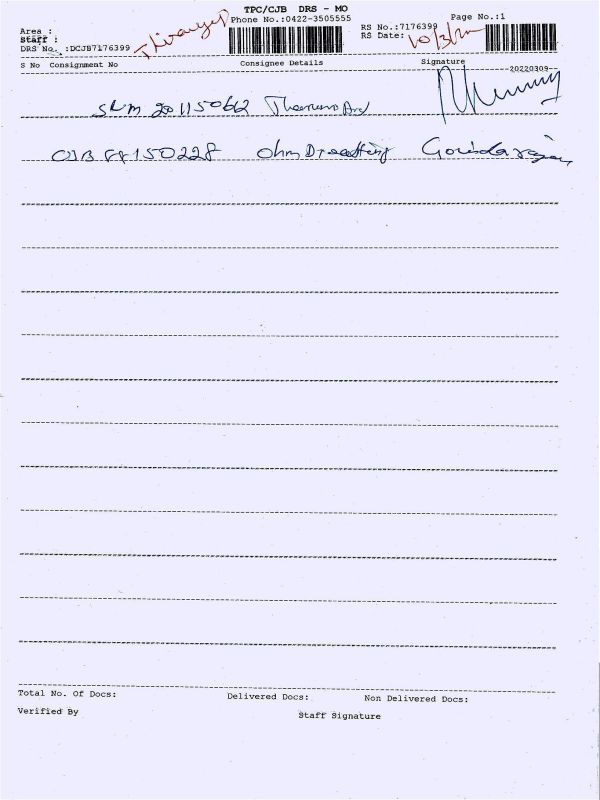 TPC/CJB DRS - MO
Phone No.:0422-3505555 Page No.:1
Area : RS No.:7176399
Staff : RS Date: 10/3/22
DRS No. :DCJB7176399
S No Consignment No Consignee Details Signature 20220309
SLM 201150662
CJB 88150228 Ohm
Total No. Of Docs: Delivered Docs: Non Delivered Docs:
Verified By Staff Signature